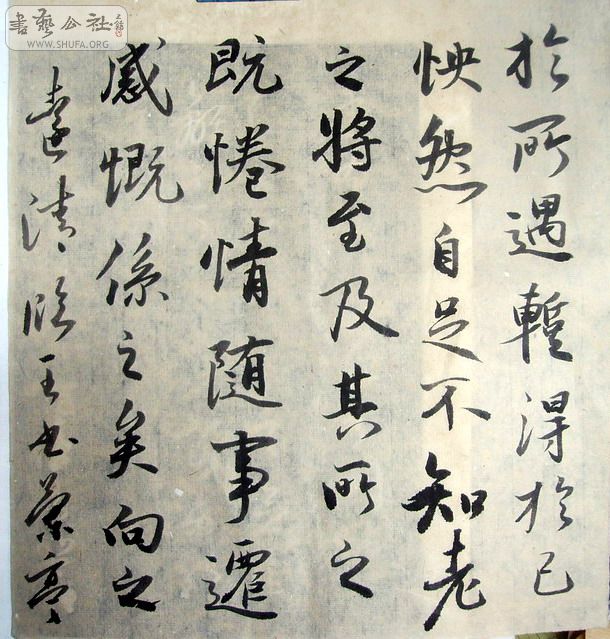 於所遇暫得於己
怏然自足不知老
之將至及其所之
既惓情随事遷
感慨係之矣向之
遠清临王书兰亭
書藝公社
WWW.SHUFA.ORG